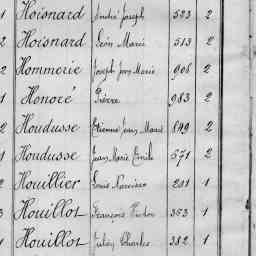 1 Hoisnard André Joseph 523 2
2 Hoisnard Léon Marie 513 2
2 Hommerie Joseph Marie 906 2
1 Honoré Pierre 983 2
2 Houdusse Etienne Jean Marie 849 2
1 Houdusse Jean Marie Emile 571 2
2 Houillier Louis Narcisse 201 1
3 Houillot François Victor 353 1
1 Houillot Julien Charles 382 1